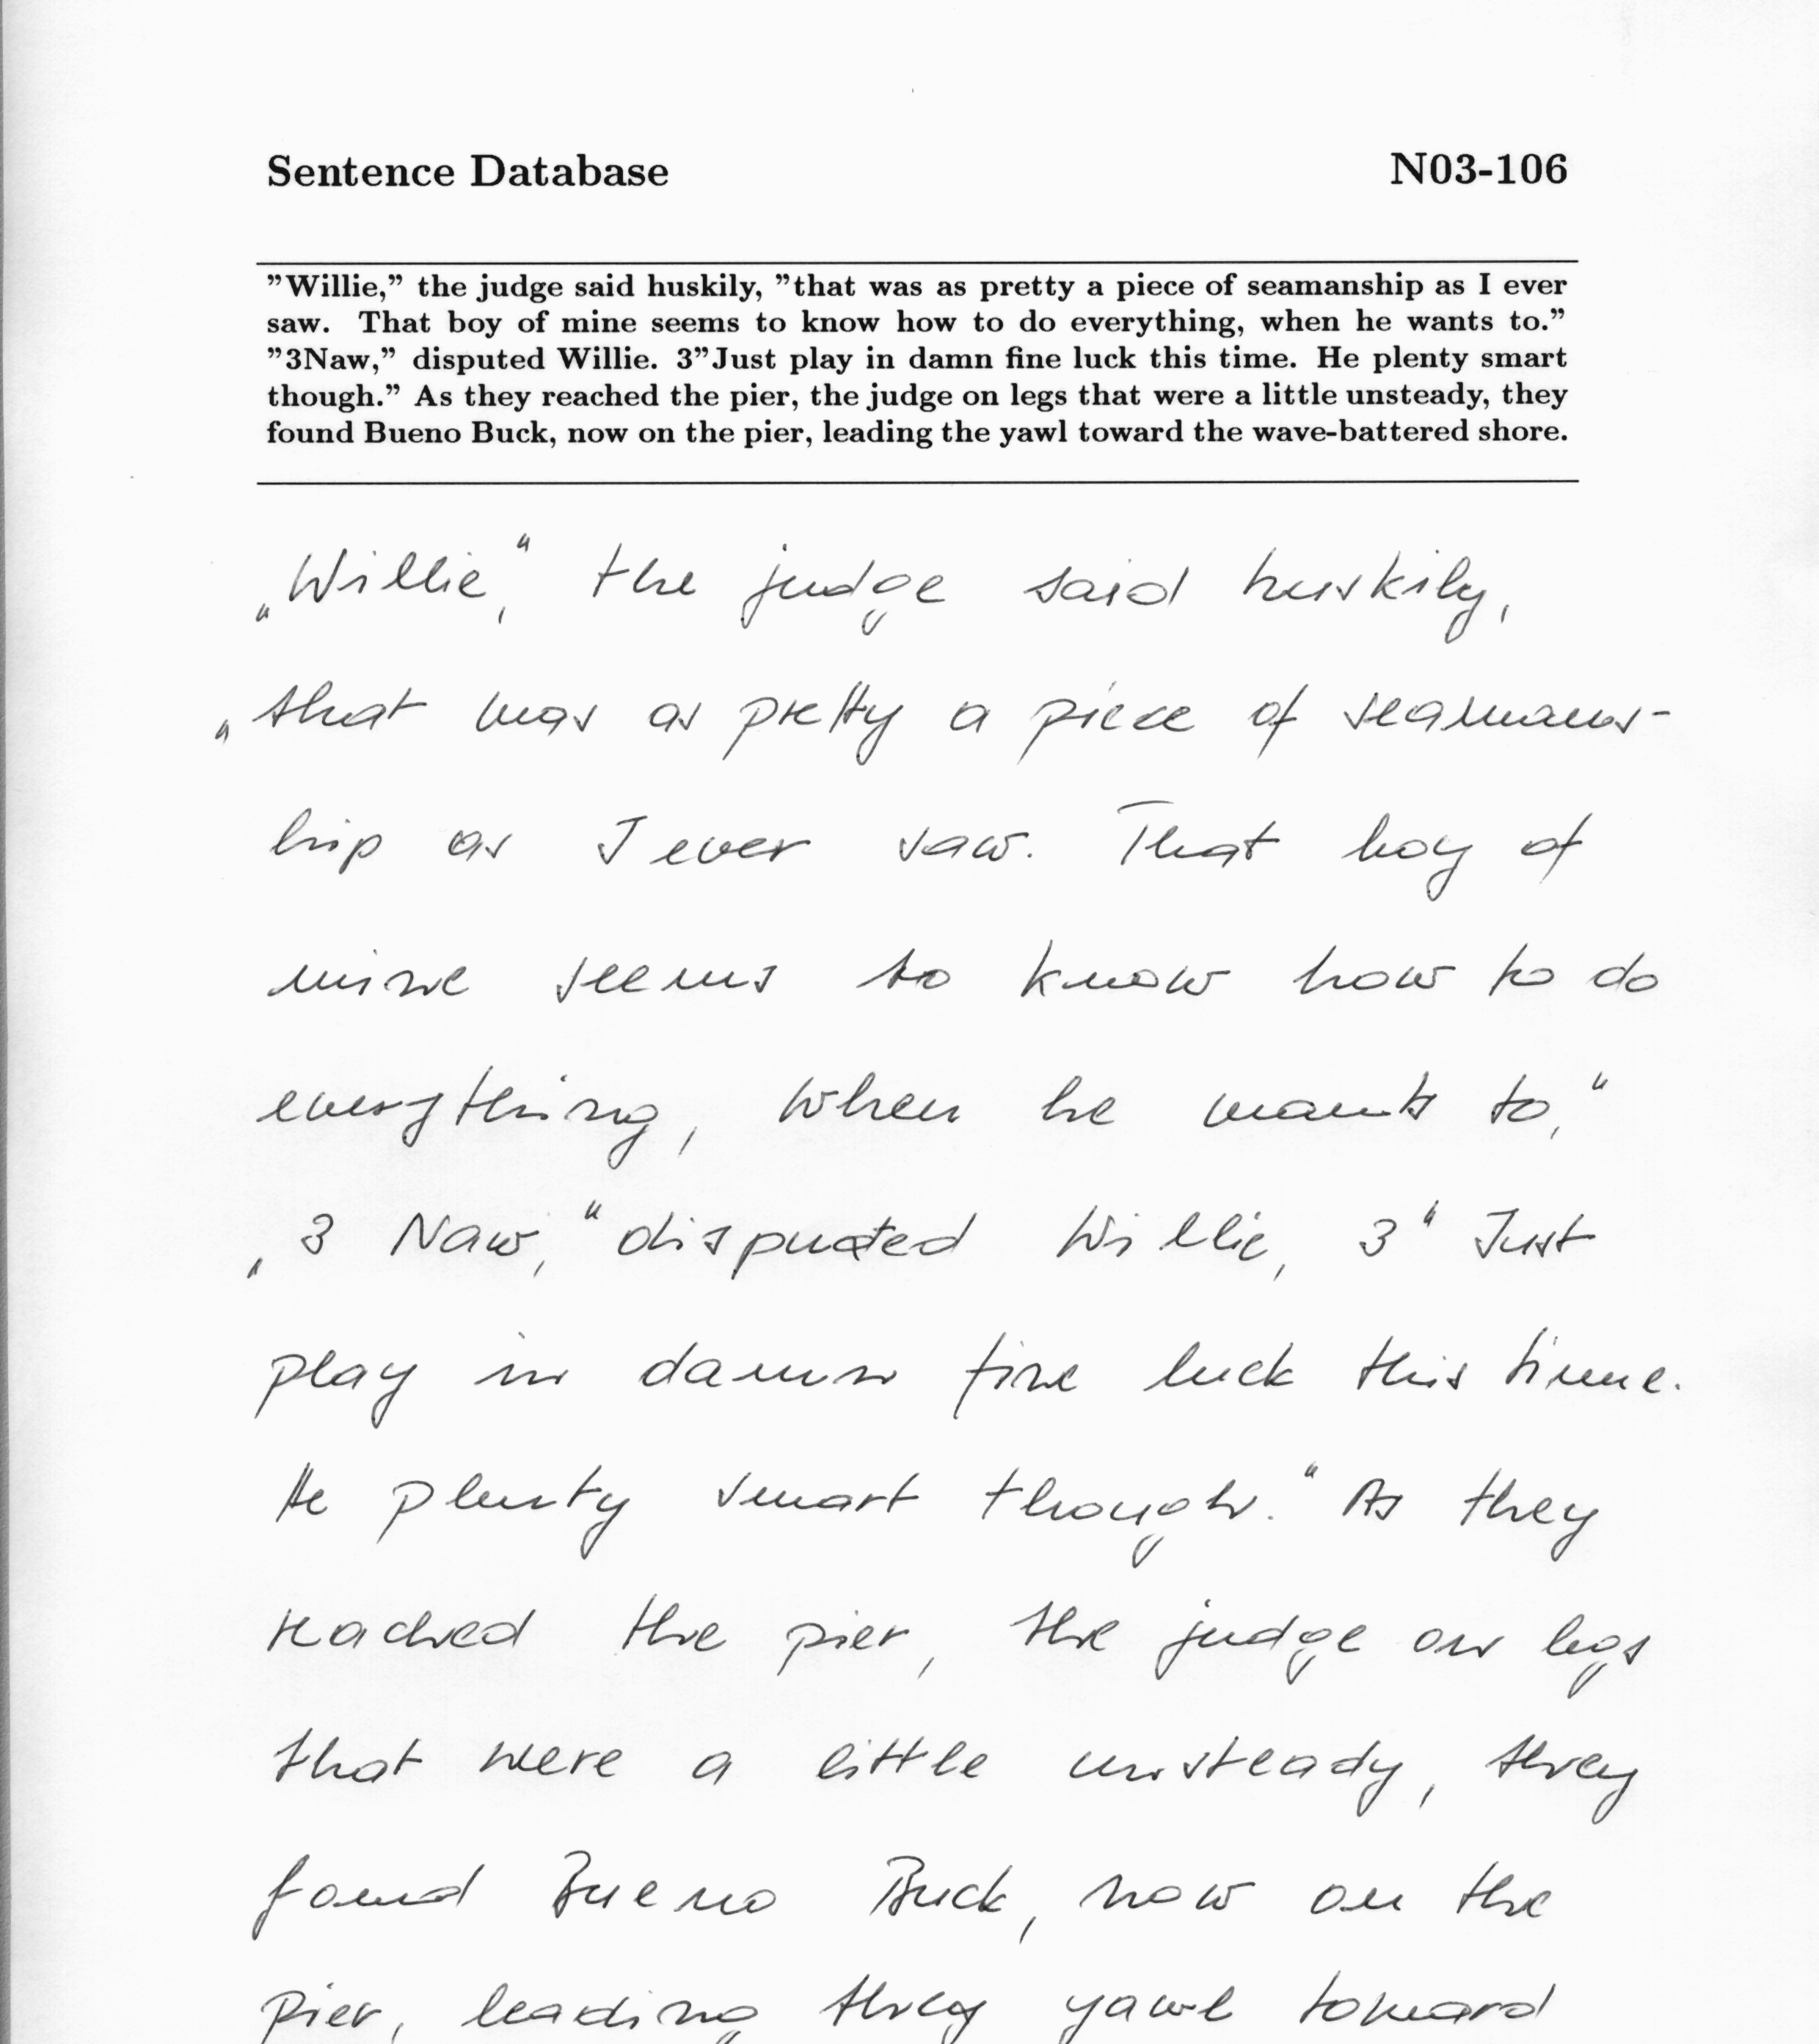 Sentence Database N03-106
”Willie,” the judge said huskily, ”that was as pretty a piece of seamanship as I ever
saw. That boy of mine seems to know how to do everything, when he wants to.”
”3Naw,” disputed Willie. 3”Just play in damn fine luck this time. He plenty smart
though.” As they reached the pier, the judge on legs that were a little unsteady, they
found Bueno Buck, now on the pier, leading the yawl toward the wave-battered shore.
„Willie,“ the judge said huskily,
„that was as pretty a piece of seamans-
hip as I ever saw. That boy of
mine seems to know how to do
everything, when he wants to,“
„3 Naw,“ disputed Willie, 3“ Just
play in damn fine luck this time.
He plenty smart though.“ As they
reached the pier, the judge on legs
that were a little unsteady, they
found Bueno Buck, now on the
pier, leading they yawl toward